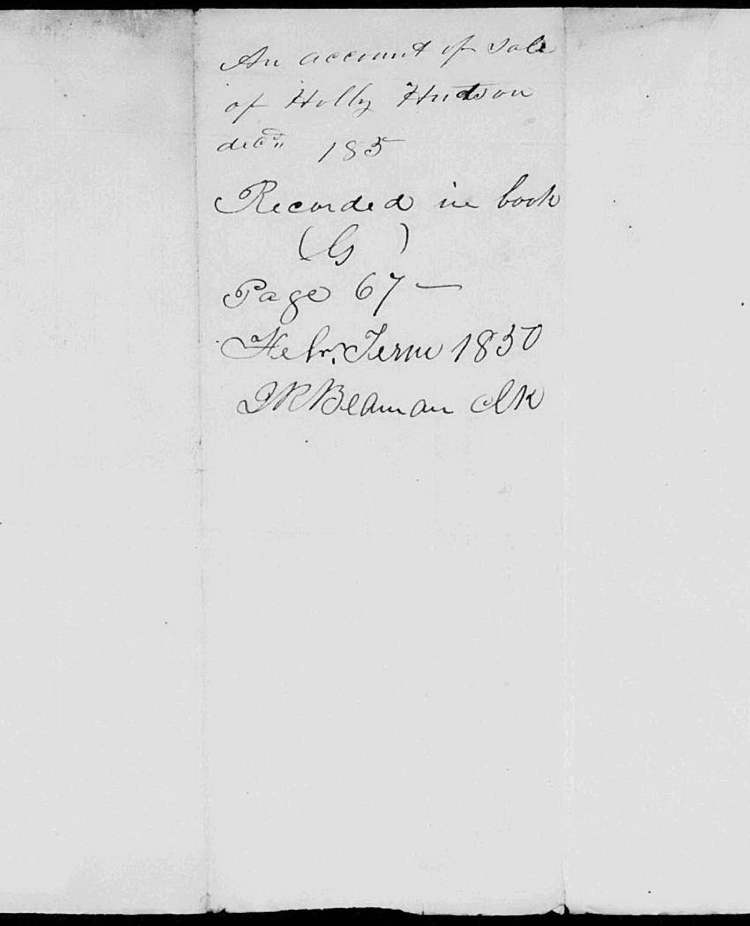 An account of Sale
of Holly Hudson
decd 185
Recorded in book
(G)
Page 67 —
Febr. Term 1850
J R Beaman Clk